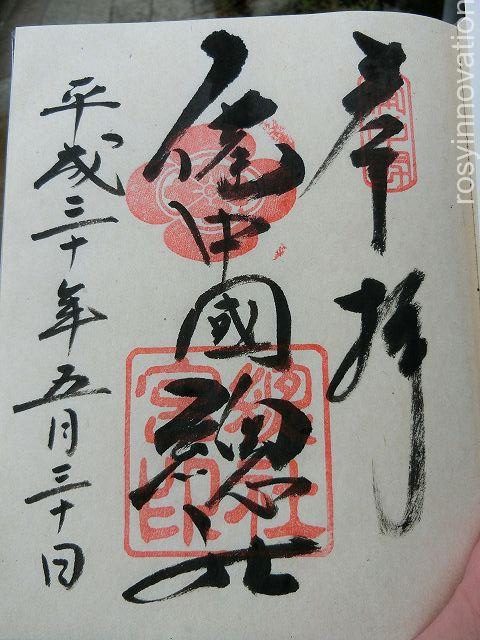 奉拝
備中國總社
總社
宮印
平成三十年五月三十日
rosyinnovation